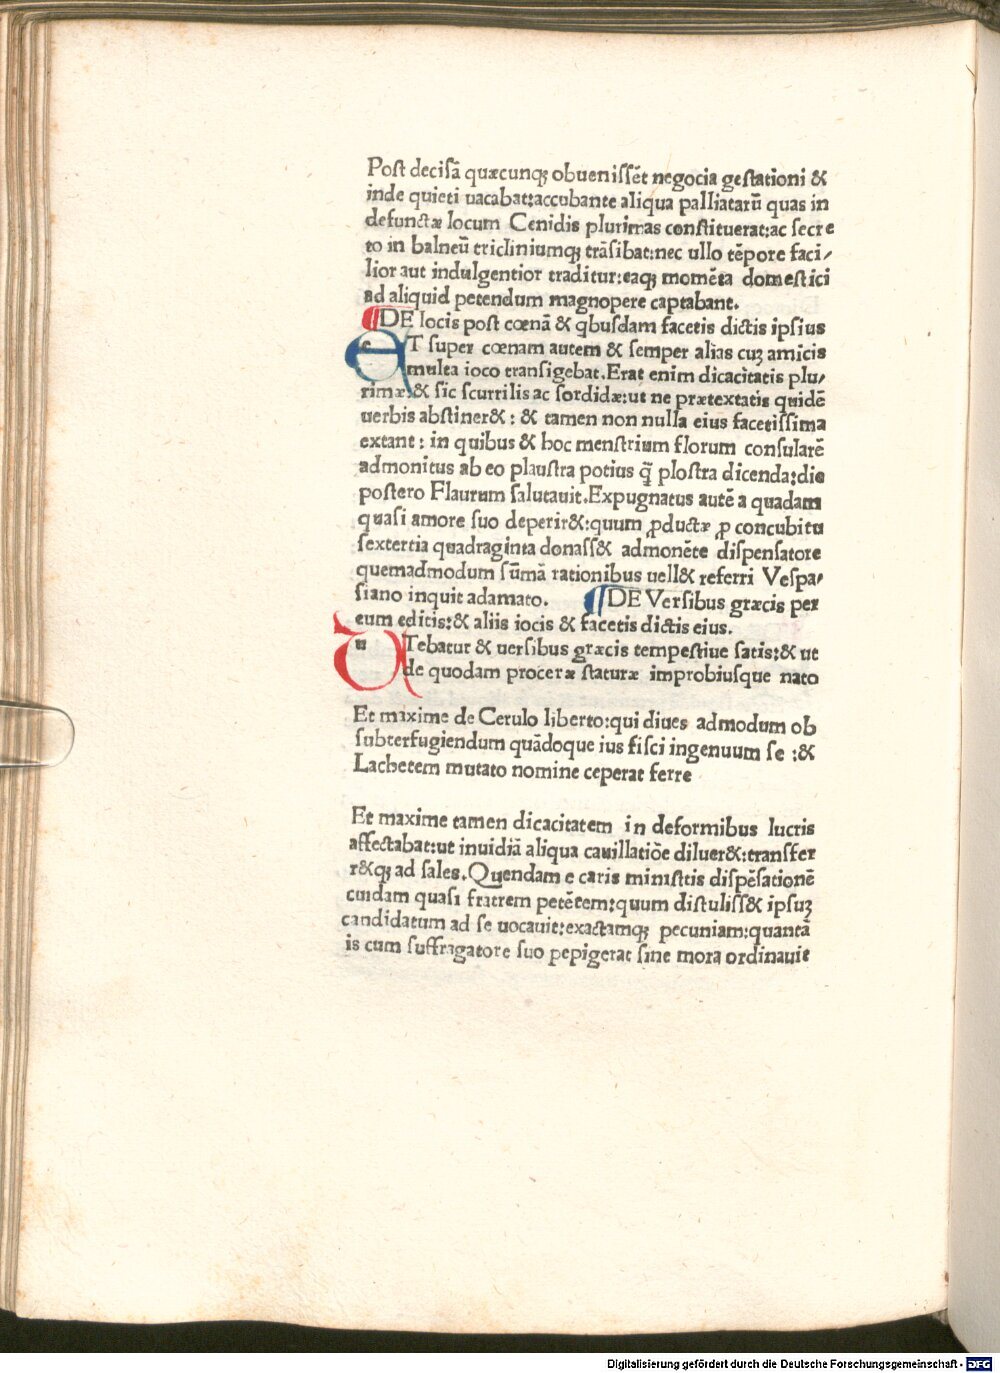 Poſt deciſā quæcunqꝫ obueniſſēt negocia geſtationi &
inde quieti uacabat:accubante aliqua palliatarū quas in
defunctæ locum Cenidis plurimas conſtituerat:ac ſecre
to in balneū tricliniumqꝫ trāſibat:nec ullo tēpore faci/
lior aut indulgentior traditur:eaqꝫ momēta domeſtici
ad aliquid petendum magnopere captabant.
¶DE Iocis poſt cœnā & qbuſdam facetis dictis ipſius
eT ſuper cœnam autem & ſemper alias cuꝫ amicis
multa ioco tranſigebat.Erat enim dicacitatis plu/
rimæ,& ſic ſcurrilis ac ſordidæ:ut ne prætextatis quidē
uerbis abſtiner&: & tamen non nulla eius facetiſſima
extant: in quibus & hoc menſtrium florum conſularē
admonitus ab eo plauſtra potius q̄ ploſtra dicenda:die
poſtero Flaurum ſalutauit.Expugnatus autē a quadam
quaſi amore ſuo deperir&:quum ꝓductæ ꝓ concubitu
ſextertia quadraginta donaſſ& admonēte diſpenſatore
quemadmodum ſūmā rationibus uell& referri Veſpa/
ſiano inquit adamato. ¶DE Verſibus græcis per
eum editis:& aliis iocis & facetis dictis eius.
uTebatur & uerſibus græcis tempeſtiue ſatis:& ut
de quodam proceræ ſtaturæ improbiuſque nato
Et maxime de Cerulo liberto:qui diues admodum ob
ſubterfugiendum quādoque ius fiſci ingenuum ſe :&
Lachetem mutato nomine ceperat ferre
Et maxime tamen dicacitatem in deformibus lucris
affectabat:ut inuidiā aliqua cauillatiōe diluer&:tranſfer
r&qꝫ ad ſales.Quendam e caris miniſtris diſpēſationē
cuidam quaſi fratrem petētem:quum diſtuliſſ& ipſuꝫ
candidatum ad ſe uocauit:exactamqꝫ pecuniam:quantā
is cum ſuffragatore ſuo pepigerat ſine mora ordinauit
Digitalisierung gefördert durch die Deutsche Forschungsgemeinschaft - DFG